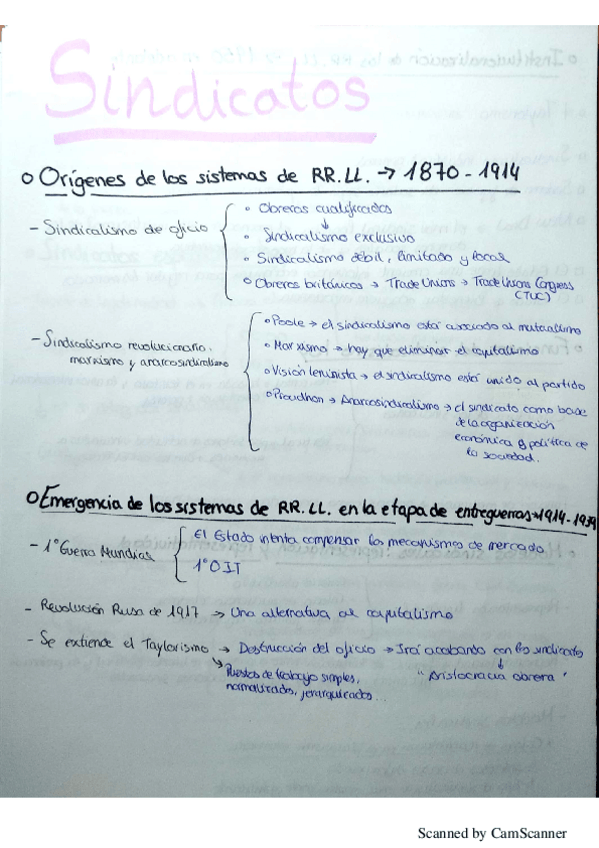 Sindicatos
o Orígenes de los sistemas de RR.LL. → 1870 - 1914
- Sindicalismo de oficio
• Obreros cualificados
↓
Sindicalismo exclusivo
• Sindicalismo débil, limitado y local
• Obreros británicos → Trade Unions → Trade Unions Congress
(TUC)
- Sindicalismo revolucionario:
marxismo y anarcosindicalismo
• Poole → el sindicalismo está asociado al mutualismo
• Marxismo → hay que eliminar el capitalismo
• Visión leninista → el sindicalismo está unido al partido
• Proudhon → Anarcosindicalismo → el sindicato como base
de la organización
económica y política de
la sociedad.
o Emergencia de los sistemas de RR.LL. en la etapa de entreguerras → 1914 - 1939
- 1º Guerra Mundial
El Estado intenta compensar los mecanismos de mercado
1º OIT
- Revolución Rusa de 1917 → Una alternativa al capitalismo
- Se extiende el Taylorismo → Destrucción del oficio → Irá acabando con los sindicatos
↓
"Aristocracia obrera"
Puestos de trabajo simples,
normalizados, jerarquizados...
Scanned by CamScanner